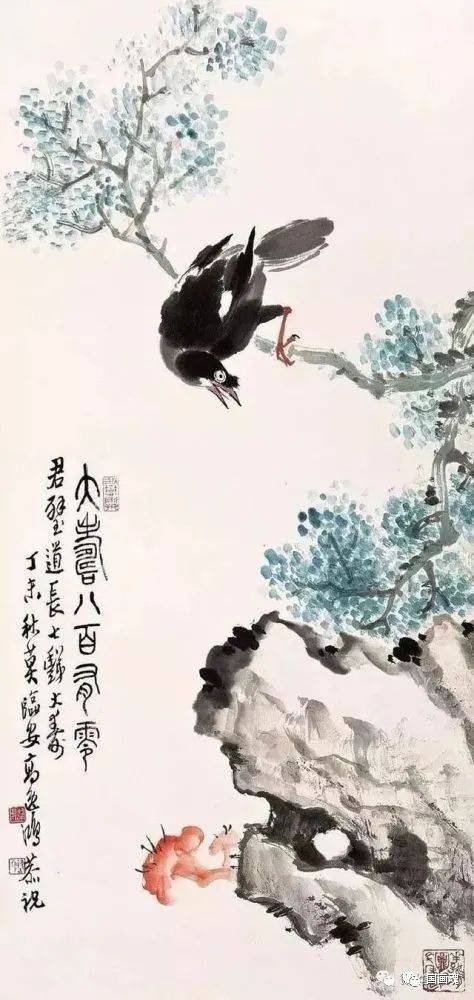 大壽八百有零
君璧道長七豑大壽
丁未秋莫臨安高逸鴻恭祝
国画魂